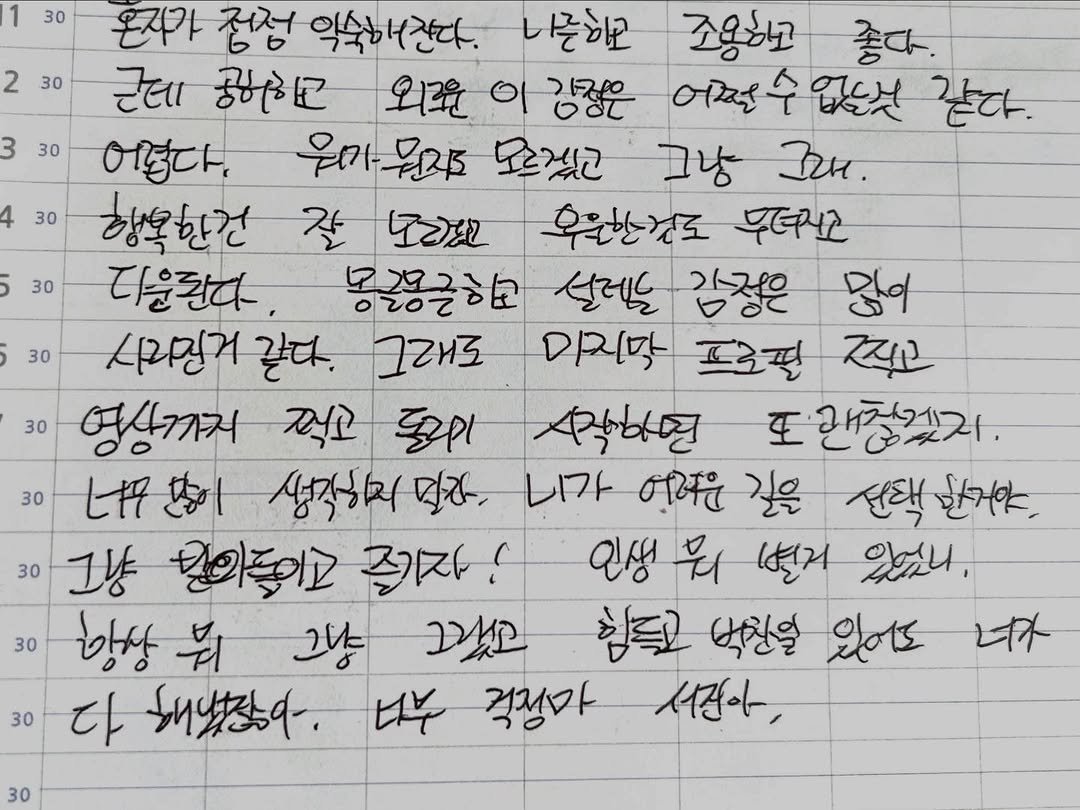 11 30 혼자가 점점 익숙해진다. 나른하고 조용하고 좋다.
2 30 근데 공허하고 외로운 이 감정은 어쩔 수 없는것 같다.
3 30 어렵다. 뭐가 뭔지도 모르겠고 그냥 그래.
4 30 행복한건 잘 모르겠고 우울한건도 무뎌지고
5 30 다운된다. 몽글몽글하고 설레는 감정은 많이
6 30 사라진거 같다. 그래도 마지막 프로필 찍고
30 영상까지 찍고 돌리기 시작하면 또 괜찮겠지.
30 너무 많이 생각하지 말자. 니가 어려운 길을 선택 한거야.
30 그냥 받아들이고 즐기자! 인생 뭐 별거 있었니.
30 항상 뭐 그냥 그랬고 힘들고 벅찬일 있어도 너가
30 다 해냈잖아. 너무 걱정마 서진아,
30